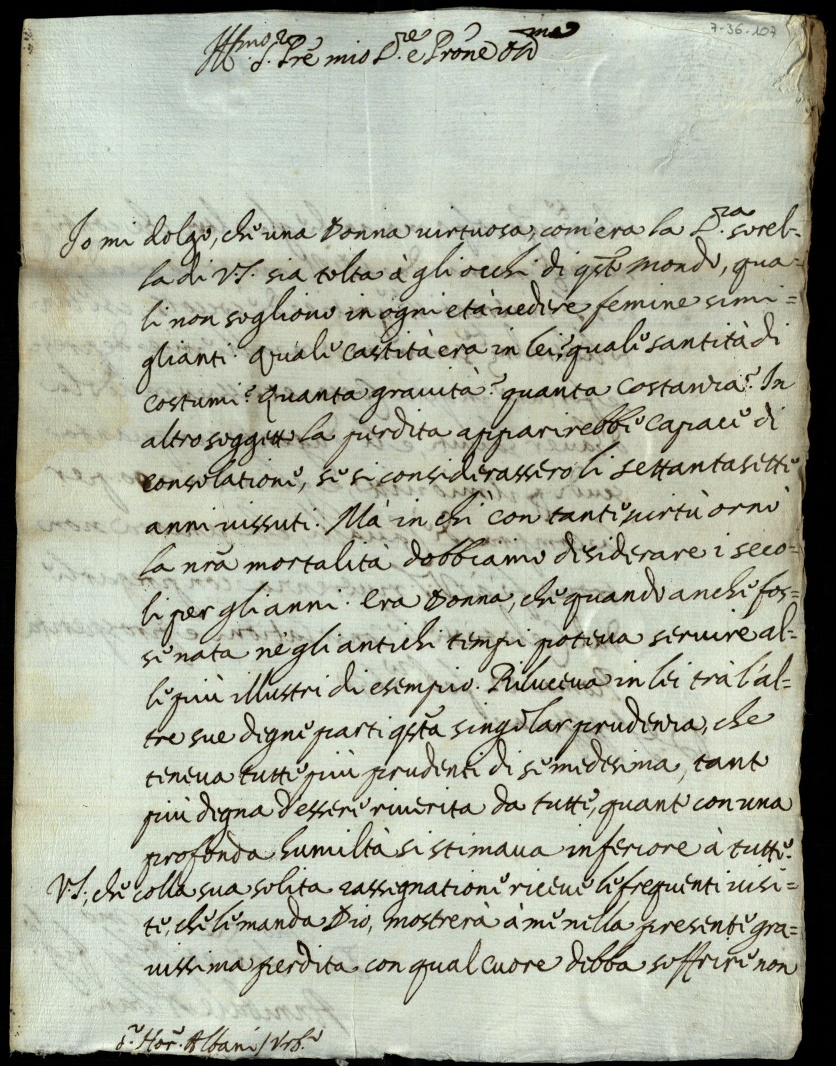 7-36-107
Ill.mo S.r P.re mio S.re e P.rone Oss.mo
Io mi dolgo, che una Donna virtuosa, com'era la S.ra sorel=
la di VS. sia tolta à gli occhi di q.sto Mondo, qua=
li non sogliono in ogni età vedere femine simi=
glianti. Quale castità era in lei? quale santità di
costumi? Quanta gravità? quanta costanza? In
altro soggetto la perdita apparirebbe capace di
consolatione, se si considerassero li settantasette
anni vissuti. Mà in chi con tante virtù ornò
la nra mortalità dobbiamo desiderare i seco=
li per gli anni. Era Donna, che quando anche fos=
se nata nè gli antichi tempi poteva servire al=
le più illustri di esempio. Riluceva in lei trà l'al=
tre sue degne parti q.sta singolar prudenza, che
teneva tutte più prudenti di se medesima, tanto
più degna d'essere riverita da tutte, quanto con una
profonda humiltà si stimava inferiore à tutte.
VS., che colla sua solita rassegnatione riceve le frequenti visi=
te, che le manda Dio, mostrerà à me nella presente gra=
vissima perdita con qual cuore debba soffrire non
S.r Hor. Albani / Urb.o